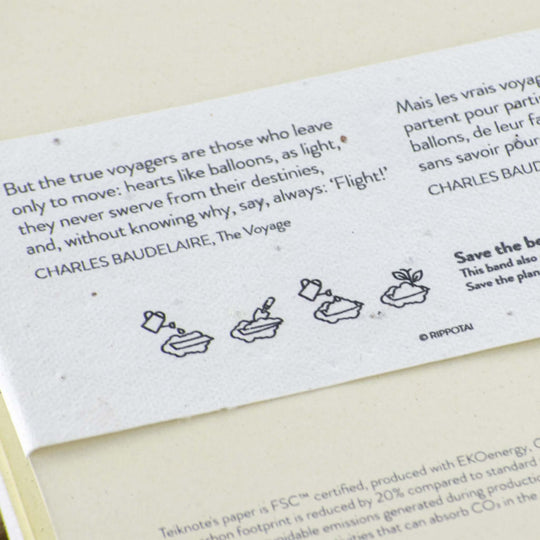 But the true voyagers are those who leave
only to move: hearts like balloons, as light,
they never swerve from their destinies,
and, without knowing why, say, always: ‘Flight!’
CHARLES BAUDELAIRE, The Voyage
Mais les vrais
partent pour
ballons, de leur
sans savoir pour
CHARLES
Save the
This band also
Save the
© RIPPOTAI
Teiknote's paper is FSC™ certified, produced with EKOenergy.
footprint is reduced by 20% compared to standard
emissions generated during
that can absorb CO₂ in the